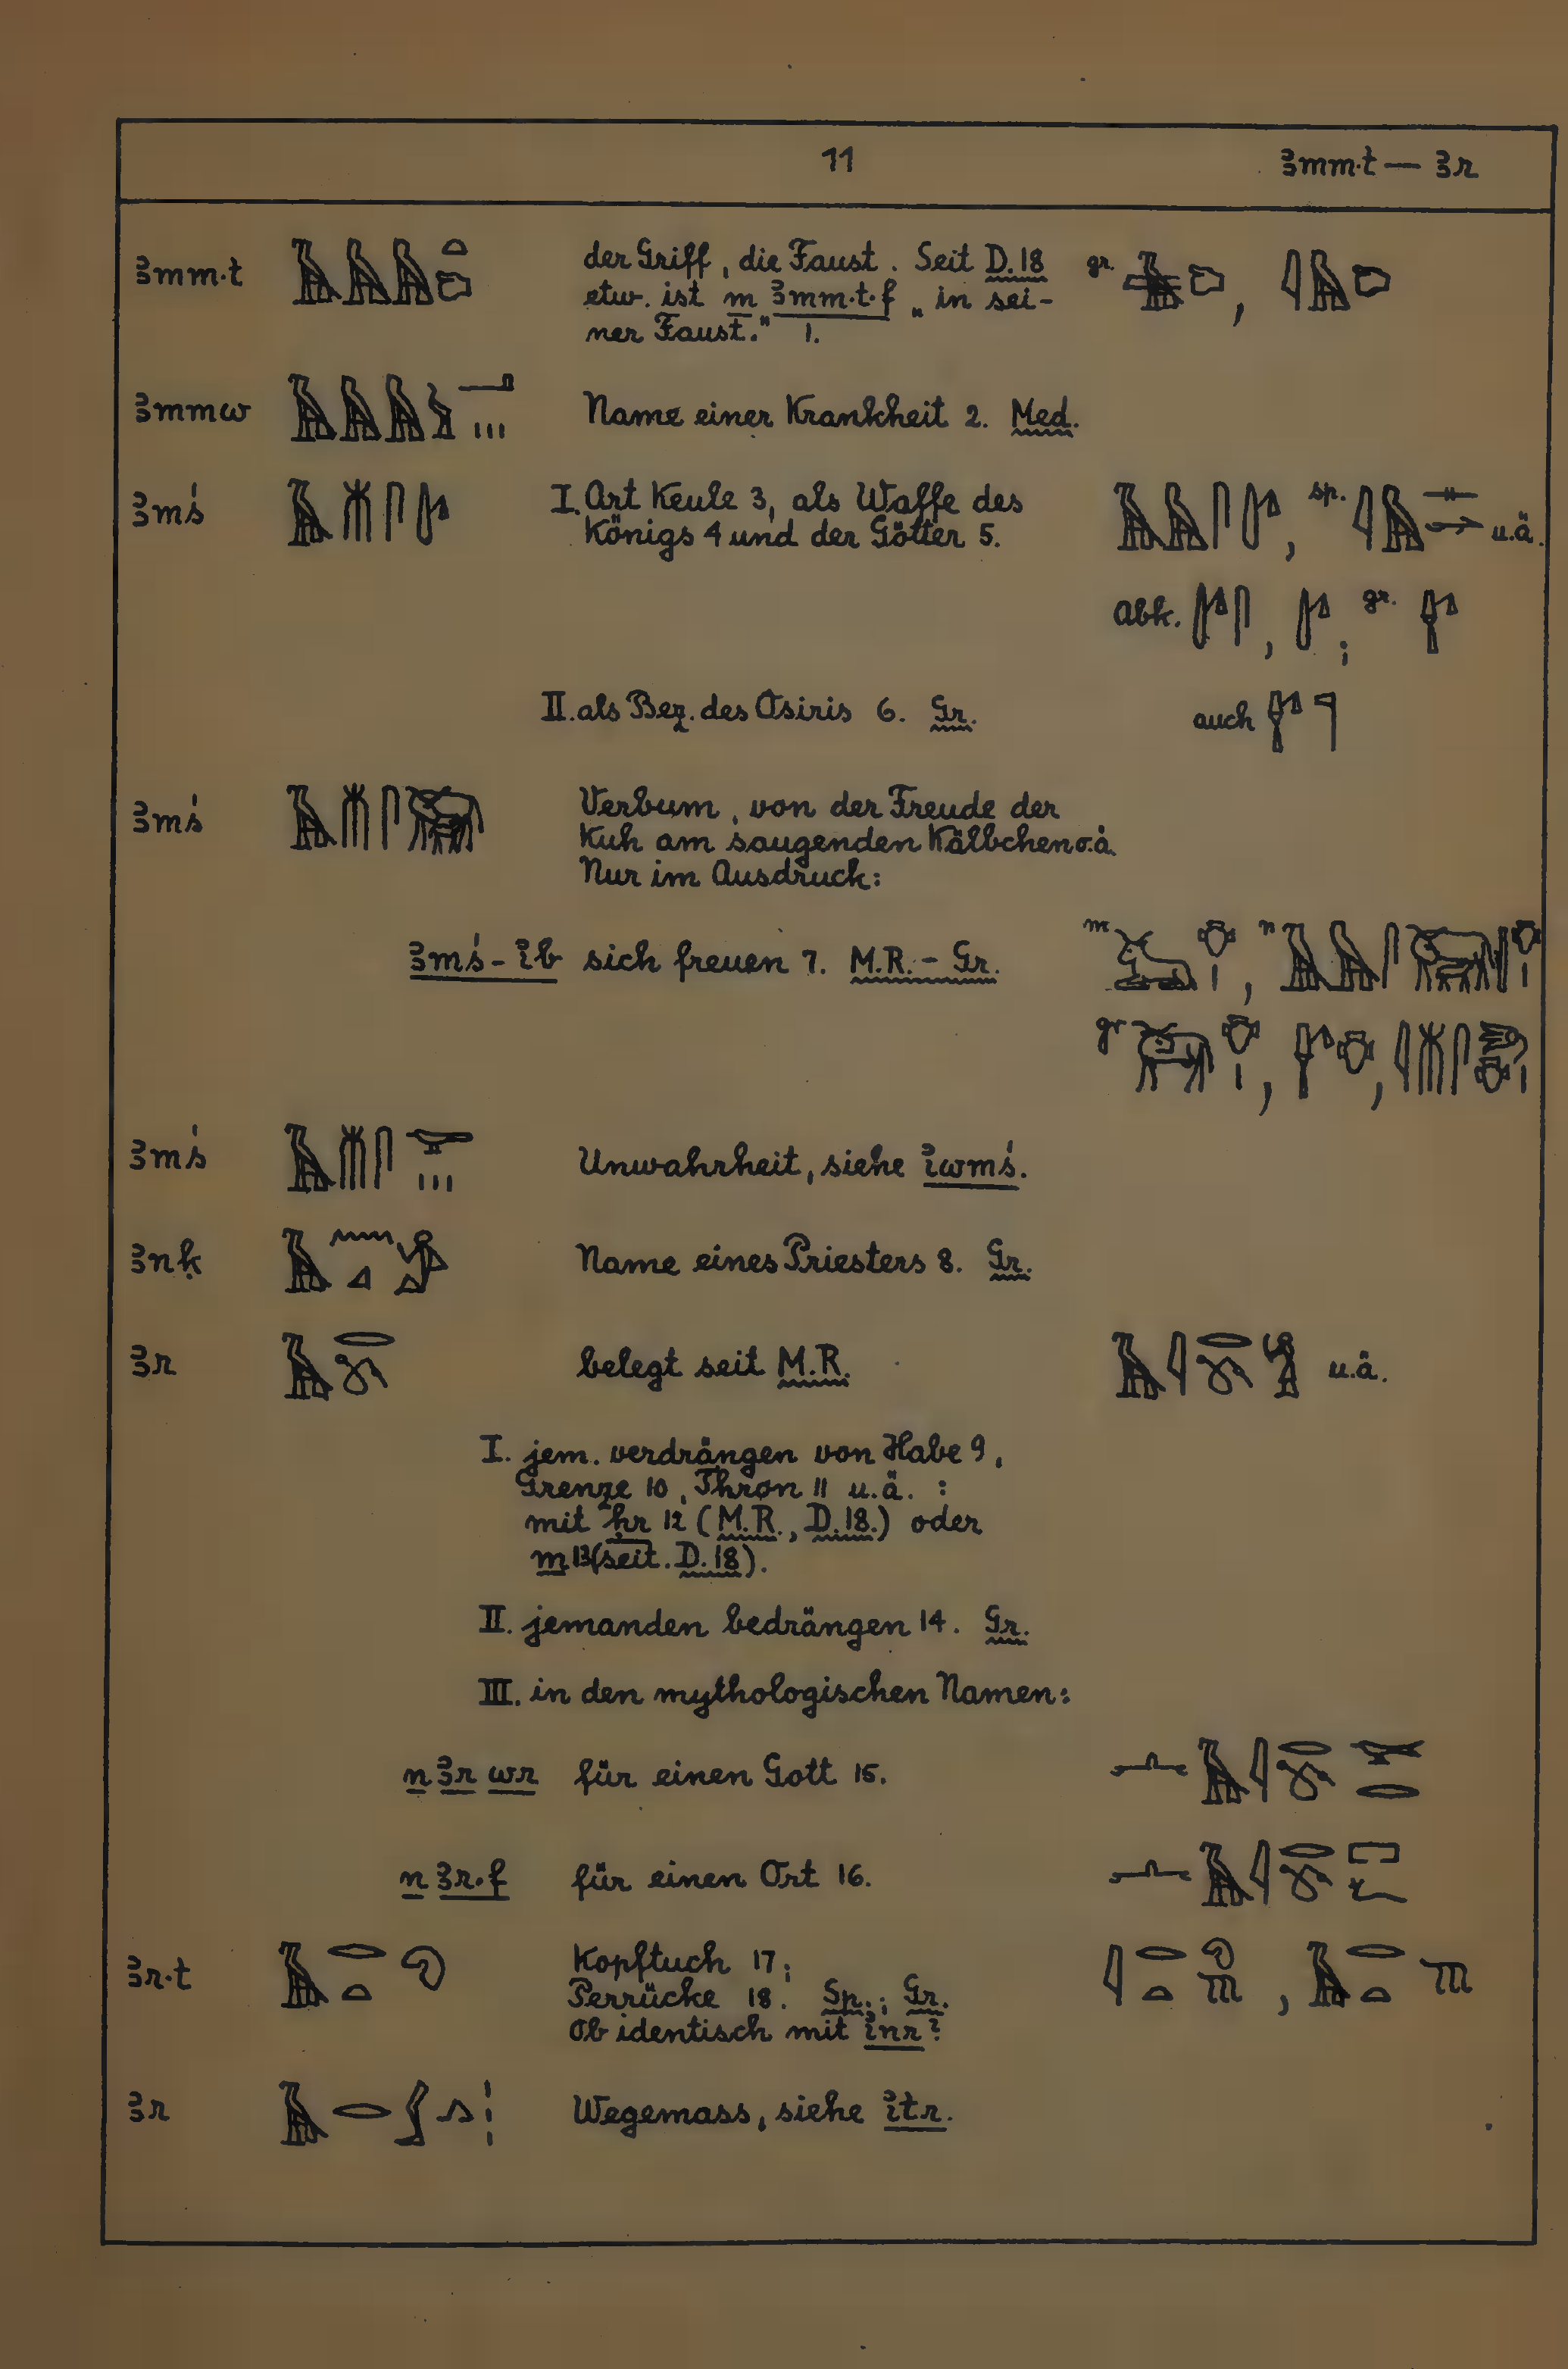 11 ꜣmm·t — ꜣr
ꜣmm·t der Griff, die Faust. Seit D.18 gr. ,
etw. ist m ꜣmm·t·f „in sei-
ner Faust." 1.
ꜣmmw Name einer Krankheit 2. Med.
ꜣmś I. Art Keule 3, als Waffe des , sp. u.ä.
Königs 4 und der Götter 5.
Abk. , ; gr.
II. als Bez. des Osiris 6. Gr. auch
ꜣmś Verbum, von der Freude der
Kuh am saugenden Kälbchen o.ä.
Nur im Ausdruck:
ꜣmś-ỉb sich freuen 7. M.R.-Gr. m , n
gr , ,
ꜣmś Unwahrheit, siehe ỉwmś.
ꜣnḳ Name eines Priesters 8. Gr.
ꜣr belegt seit M.R. u.ä.
I. jem. verdrängen von Habe 9,
Grenze 10, Thron 11 u.ä. :
mit ḥr 12 (M.R., D.18.) oder
m 13 (seit. D.18).
II. jemanden bedrängen 14. Gr.
III. in den mythologischen Namen:
n ꜣr wr für einen Gott 15.
n ꜣr·f für einen Ort 16.
ꜣr·t Kopftuch 17; ,
Perrücke 18. Sp.; Gr.
Ob identisch mit ỉnr?
ꜣr Wegemass, siehe ỉtr.